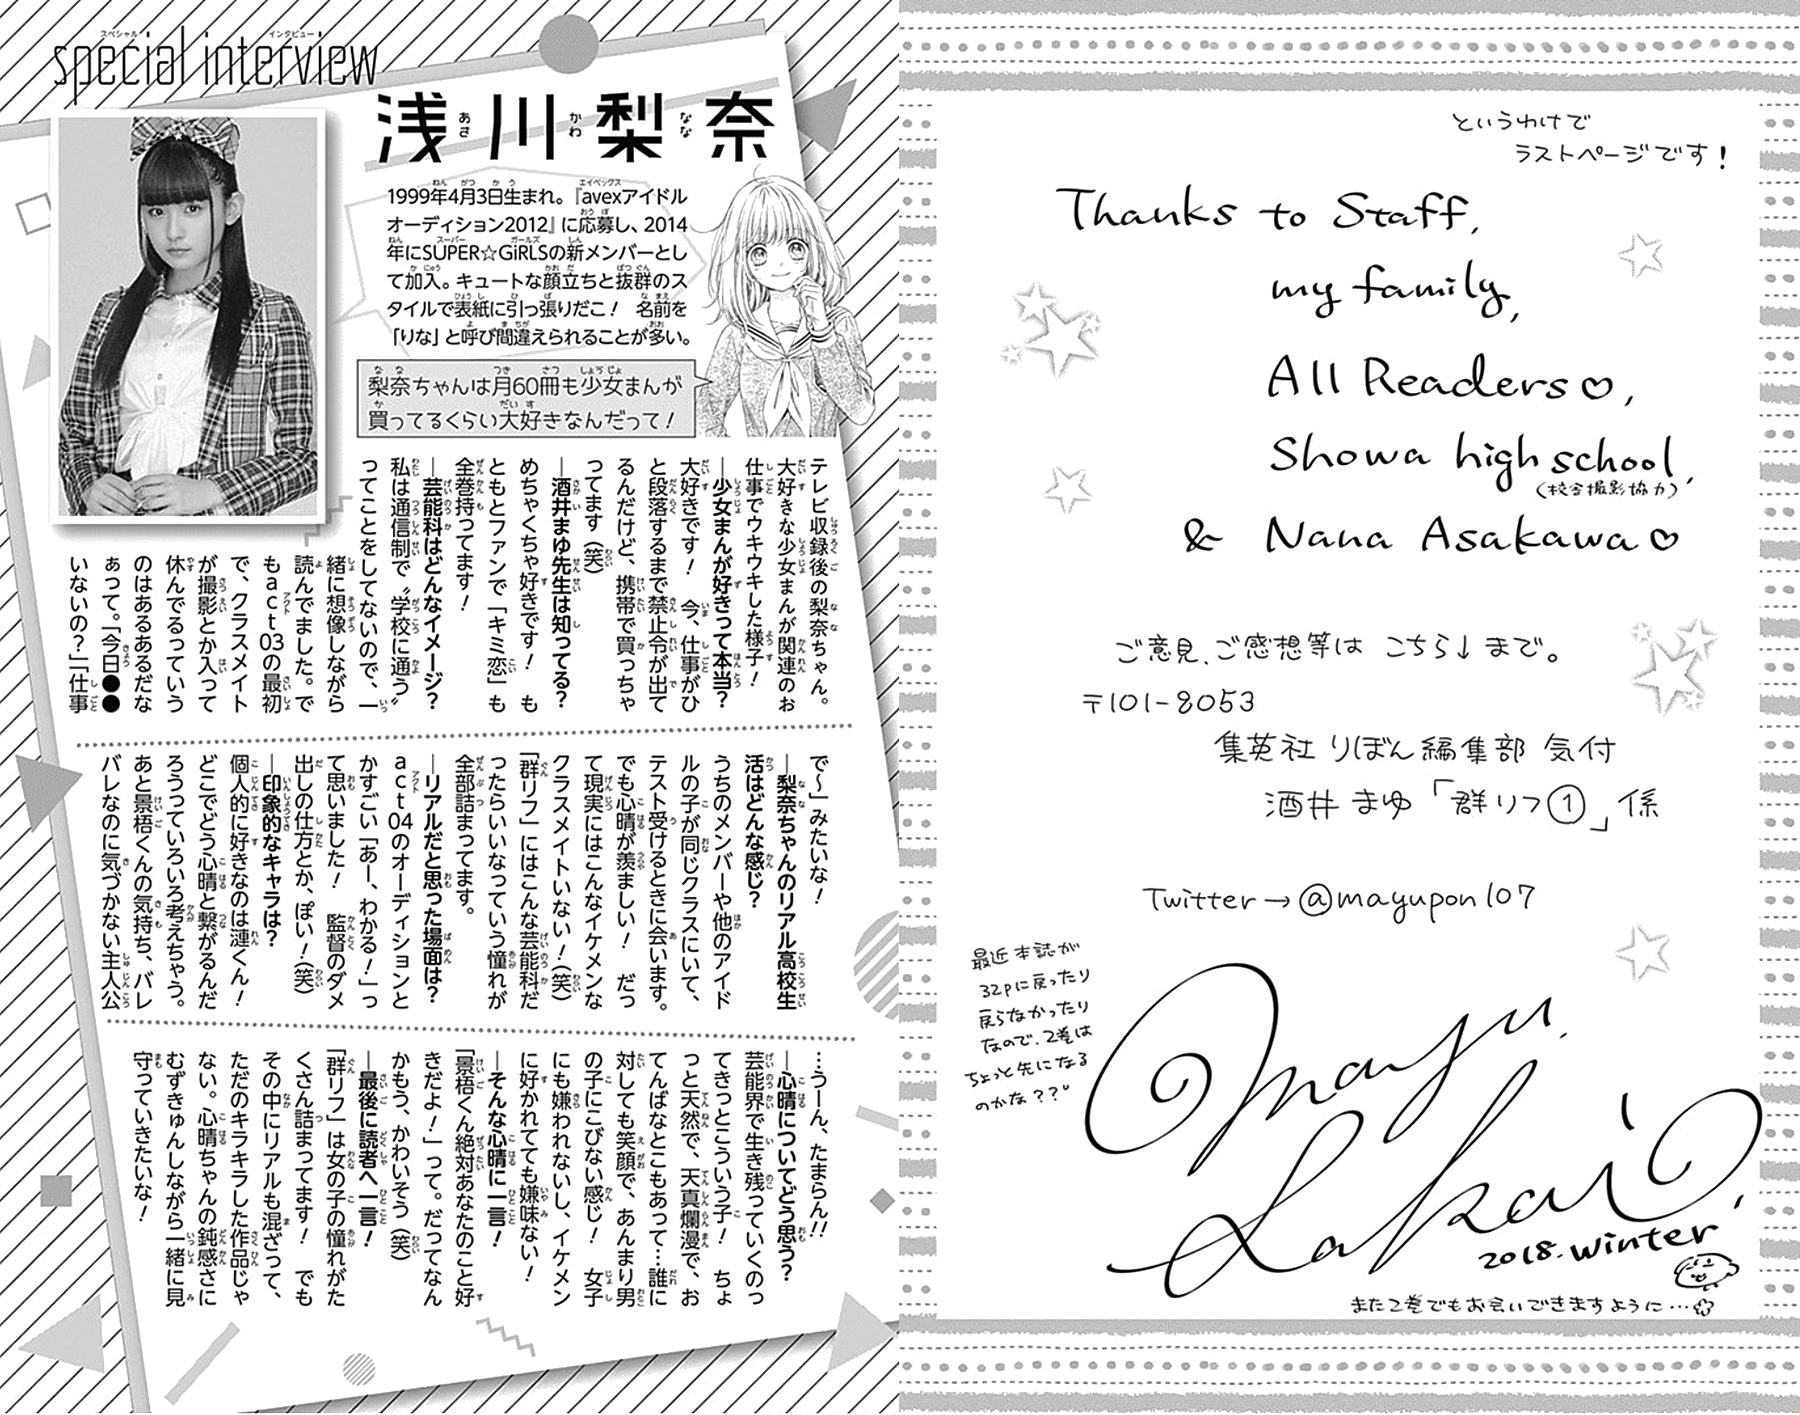 special interview
スペシャル インタビュー
浅川梨奈
あさ かわ なな
1999年4月3日生まれ。『avexアイドル
オーディション2012』に応募し、2014
年にSUPER☆GiRLSの新メンバーとし
て加入。キュートな顔立ちと抜群のス
タイルで表紙に引っ張りだこ！ 名前を
「りな」と呼び間違えられることが多い。
梨奈ちゃんは月60冊も少女まんが
買ってるくらい大好きなんだって！
テレビ収録後の梨奈ちゃん。
大好きな少女まんが関連のお
仕事でウキウキした様子！
―少女まんが好きって本当？
大好きです！ 今、仕事がひ
と段落するまで禁止令が出て
るんだけど、携帯で買っちゃ
ってます（笑）
―酒井まゆ先生は知ってる？
めちゃくちゃ好きです！ も
ともとファンで「キミ恋」も
全巻持ってます！
―芸能科はどんなイメージ？
私は通信制で〝学校に通う〟
ってことをしてないので、一
緒に想像しながら
読んでました。で
もact03の最初
で、クラスメイト
が撮影とか入って
休んでるっていう
のはあるあるだな
あって。「今日●●
いないの？」「仕事
で〜」みたいな！
―梨奈ちゃんのリアル高校生
活はどんな感じ？
うちのメンバーや他のアイド
ルの子が同じクラスにいて、
テスト受けるときに会います。
でも心晴が羨ましい！ だっ
て現実にはこんなイケメンな
クラスメイトいない！（笑）
『群リフ』にはこんな芸能科だ
ったらいいなっていう憧れが
全部詰まってます。
―リアルだと思った場面は？
act04のオーディションと
かすごい「あー、わかる！」っ
て思いました！ 監督のダメ
出しの仕方とか、ぽい！（笑）
―印象的なキャラは？
個人的に好きなのは漣くん！
どこでどう心晴と繋がるんだ
ろうっていろいろ考えちゃう。
あと景悟くんの気持ち、バレ
バレなのに気づかない主人公
…うーん、たまらん!!
―心晴についてどう思う？
芸能界で生き残っていくのっ
てきっとこういう子！ ちょ
っと天然で、天真爛漫で、お
てんばなとこもあって…誰に
対しても笑顔で、あんまり男
の子にこびない感じ！ 女子
にも嫌われないし、イケメン
に好かれてても嫌味ない！
―そんな心晴に一言！
「景悟くん絶対あなたのこと好
きだよ！」って。だってなん
かもう、かわいそう（笑）
―最後に読者へ一言！
『群リフ』は女の子の憧れがた
くさん詰まってます！ でも
その中にリアルも混ざって、
ただのキラキラした作品じゃ
ない。心晴ちゃんの鈍感さに
むずきゅんしながら一緒に見
守っていきたいな！
というわけで
ラストページです！
Thanks to Staff,
my family,
All Readers♡,
Showa high school,
（校舎撮影協力）
& Nana Asakawa♡
ご意見、ご感想等は こちら↓まで。
〒101-8053
集英社 りぼん編集部 気付
酒井まゆ「群リフ①」係
Twitter→@mayupon107
最近本誌が
32pに戻ったり
戻らなかったり
なので、2巻は
ちょっと先になる
のかな？？
Mayu.
Sakai.
2018.winter
また2巻でもお会いできますように…